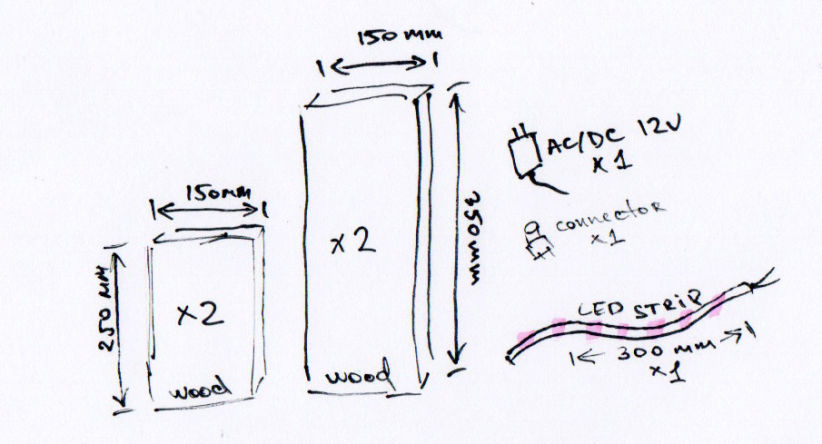 150mm
150mm
250 mm
x2
wood
x2
wood
350mm
AC/DC 12V
x1
connector
x1
LED STRIP
300 mm
x1